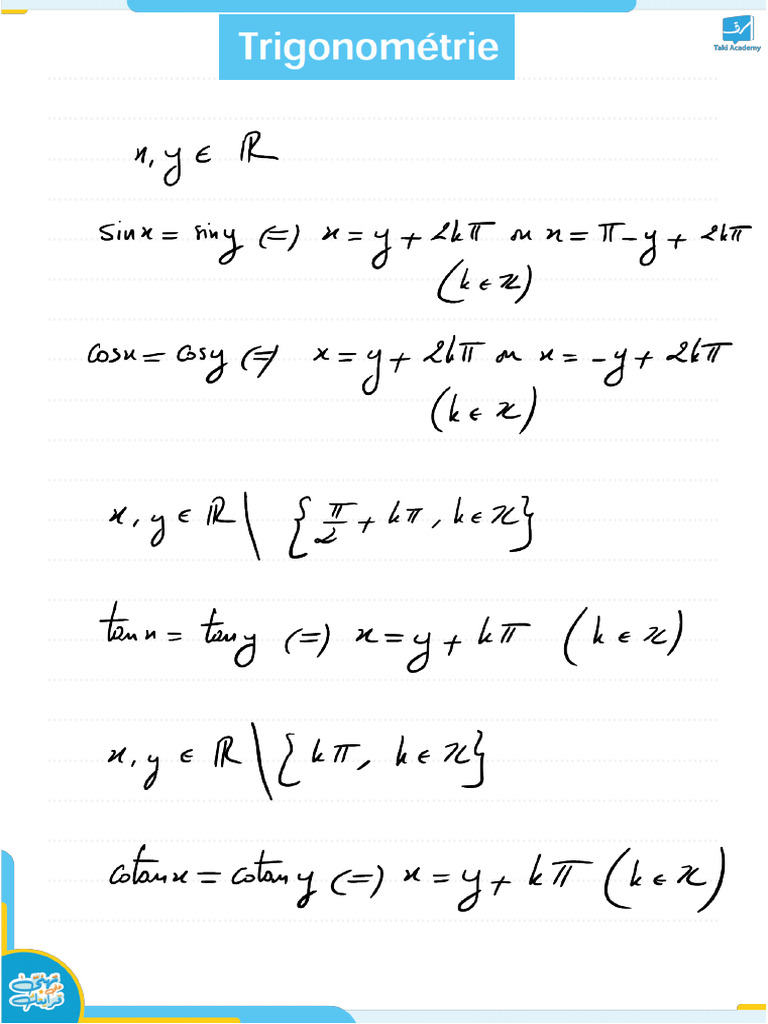 Trigonométrie
Taki Academy
x, y ∈ ℝ
sin x = sin y (=) x = y + 2kπ ou x = π - y + 2kπ
(k ∈ ℤ)
cos x = cos y (=) x = y + 2kπ ou x = -y + 2kπ
(k ∈ ℤ)
x, y ∈ ℝ \ { π/2 + kπ, k ∈ ℤ }
tan x = tan y (=) x = y + kπ (k ∈ ℤ)
x, y ∈ ℝ \ { kπ, k ∈ ℤ }
cotan x = cotan y (=) x = y + kπ (k ∈ ℤ)